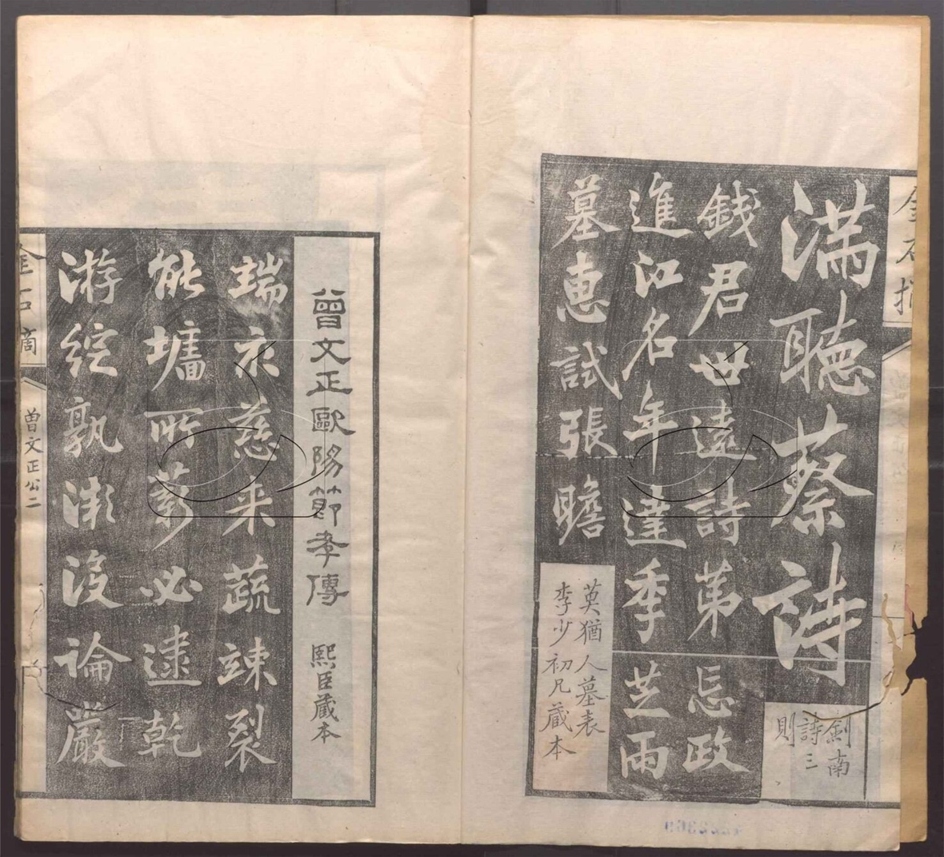 滿聽蔡詩
劍南
詩三
則
錢君世遠詩第忘政
進江名年達季芝兩
墓惠試張瞻
莫猶人墓表
李少初兄藏本
曾文正歐陽節孝傳 熙臣藏本
端衣慈来蔬竦裂
能墉所薪必逮乾
游綻孰漸沒論嚴
金石摘
曾文正公二